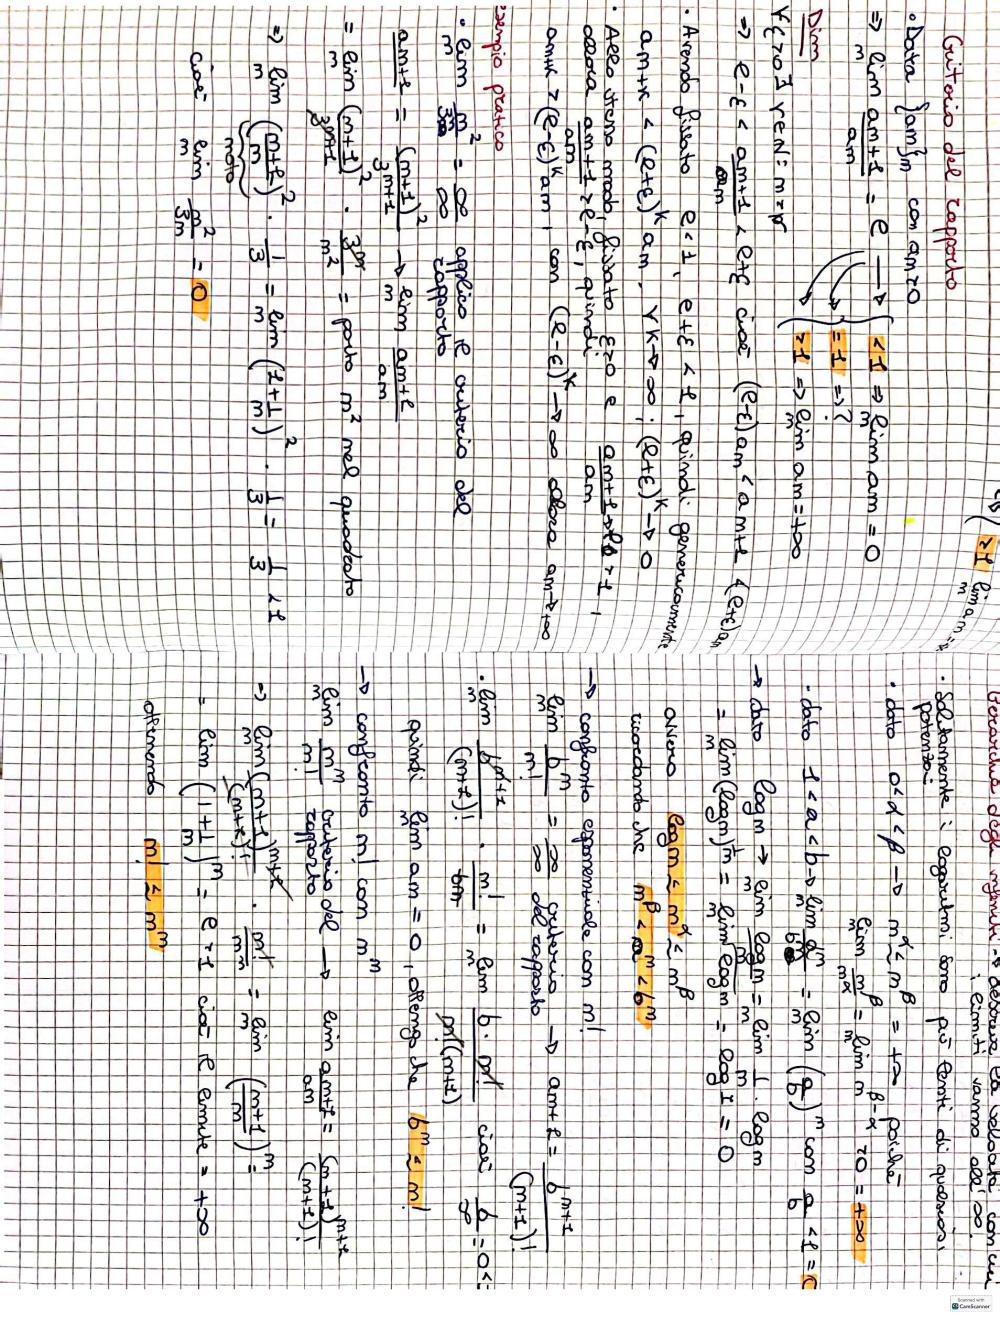 Criterio del rapporto
• Data {an}n con an>0
=> lim n an+1/an = l → { <1 => lim n an = 0
=1 => ?
>1 => lim n an = +∞
Dim
∀ε>0 ∃ ν∈N: n≥ν
=> l-ε < an+1/an < l+ε cioè (l-ε)an < an+1 < (l+ε)an
• Avendo fissato l<1, l+ε<1, quindi genericamente
an+k < (l+ε)^k an, ∀k→∞; (l+ε)^k → 0
• Allo stesso modo, fissato ε>0 e an+1/an → l >1,
allora an+1/an > l-ε, quindi
an+k > (l-ε)^k an, con (l-ε)^k → ∞ allora an→+∞
esempio pratico
• lim n n²/3^n = ∞/∞ applico il criterio del
rapporto
an+1 = (n+1)²/3^n+1 → lim n an+1/an
= lim n (n+1)²/3^n+1 · 3^n/n² = porto n² nel quadrato
=> lim n (n+1/n)² · 1/3 = lim n (1+1/n)² · 1/3 = 1/3 <1
cioè lim n n²/3^n = 0
>1 lim n an =
Gerarchia degli infiniti → descrive la velocità con cui
i limiti vanno all'∞.
• Solitamente i logaritmi sono più lenti di qualsiasi
potenza:
• dato 0<α<β → n^α ≤ n^β = +∞ poichè
lim n n^β/n^α = lim n n^β-α >0 = +∞
• dato 1<a<b → lim n a^n/b^n = lim n (a/b)^n con a/b <1 = 0
→ dato log n → lim n log n/n = lim n 1/n · log n
= lim n (log n)^1/n = lim n log n = log 1 = 0
ovvero log n ≤ n^α ≤ n^β
ricordando che n^β < a^n < b^n
→ confronto esponenziale con n!
lim n b^n/n! = ∞/∞ criterio del rapporto → an+1 = b^n+1/(n+1)!
• lim n b^n+1/(n+1)! · n!/b^n = lim n b·n!/n!(n+1) cioè b/∞ = 0 <1
quindi lim n an = 0, ottengo che b^n ≤ n!
→ confronto n! con n^n
lim n n^n/n! criterio del rapporto → lim an+1/an = (n+1)^n+1/(n+1)!
=> lim n (n+1)^n+1/(n+1)! · n!/n^n = lim n (n+1/n)^n =
= lim (1+1/n)^n = e >1 cioè il limite = +∞
ottenendo n! ≤ n^n
Scanned with
CamScanner